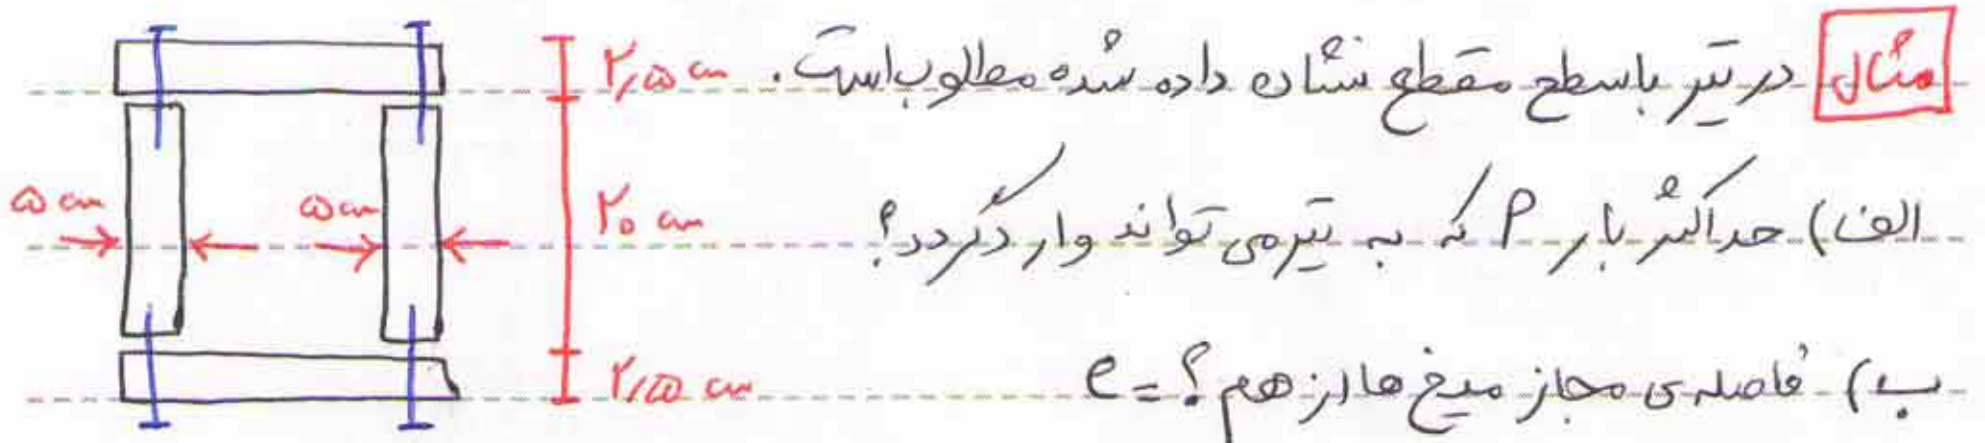 مثال در تیر با سطح مقطع نشان داده شده مطلوب است.
الف) حداکثر بار P که به تیر می تواند وارد گردد؟
ب) فاصله ی مجاز میخ ها از هم؟ = e
۲٫۵ cm
۵ cm ۵ cm ۲۰ cm
۲٫۵ cm